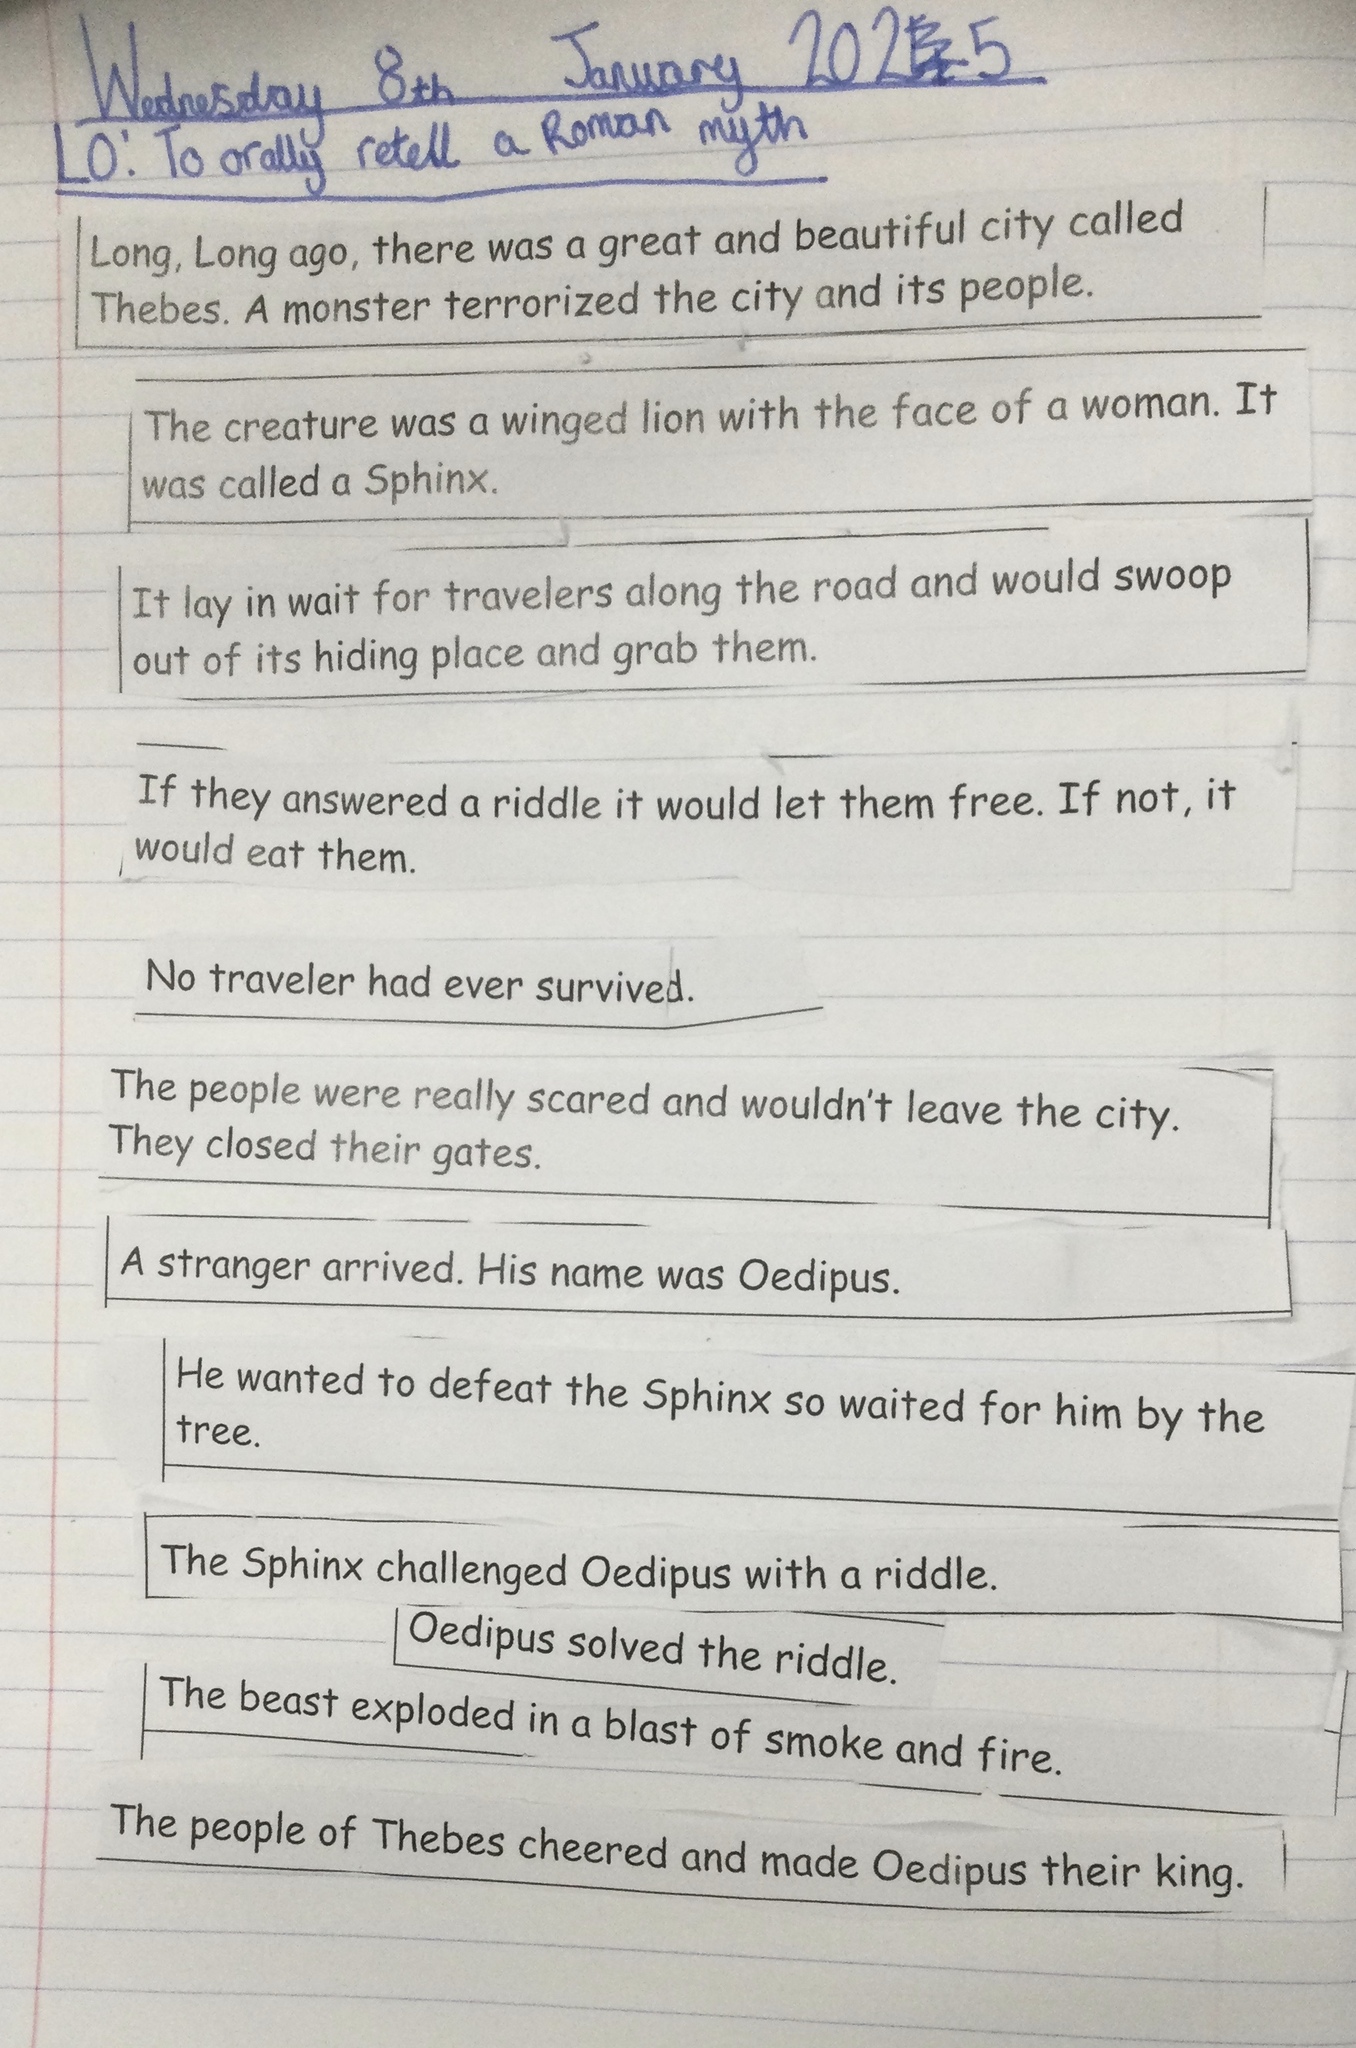 Wednesday 8th January 2025
LO: To orally retell a Roman myth
Long, Long ago, there was a great and beautiful city called
Thebes. A monster terrorized the city and its people.
The creature was a winged lion with the face of a woman. It
was called a Sphinx.
It lay in wait for travelers along the road and would swoop
out of its hiding place and grab them.
If they answered a riddle it would let them free. If not, it
would eat them.
No traveler had ever survived.
The people were really scared and wouldn't leave the city.
They closed their gates.
A stranger arrived. His name was Oedipus.
He wanted to defeat the Sphinx so waited for him by the
tree.
The Sphinx challenged Oedipus with a riddle.
Oedipus solved the riddle.
The beast exploded in a blast of smoke and fire.
The people of Thebes cheered and made Oedipus their king.